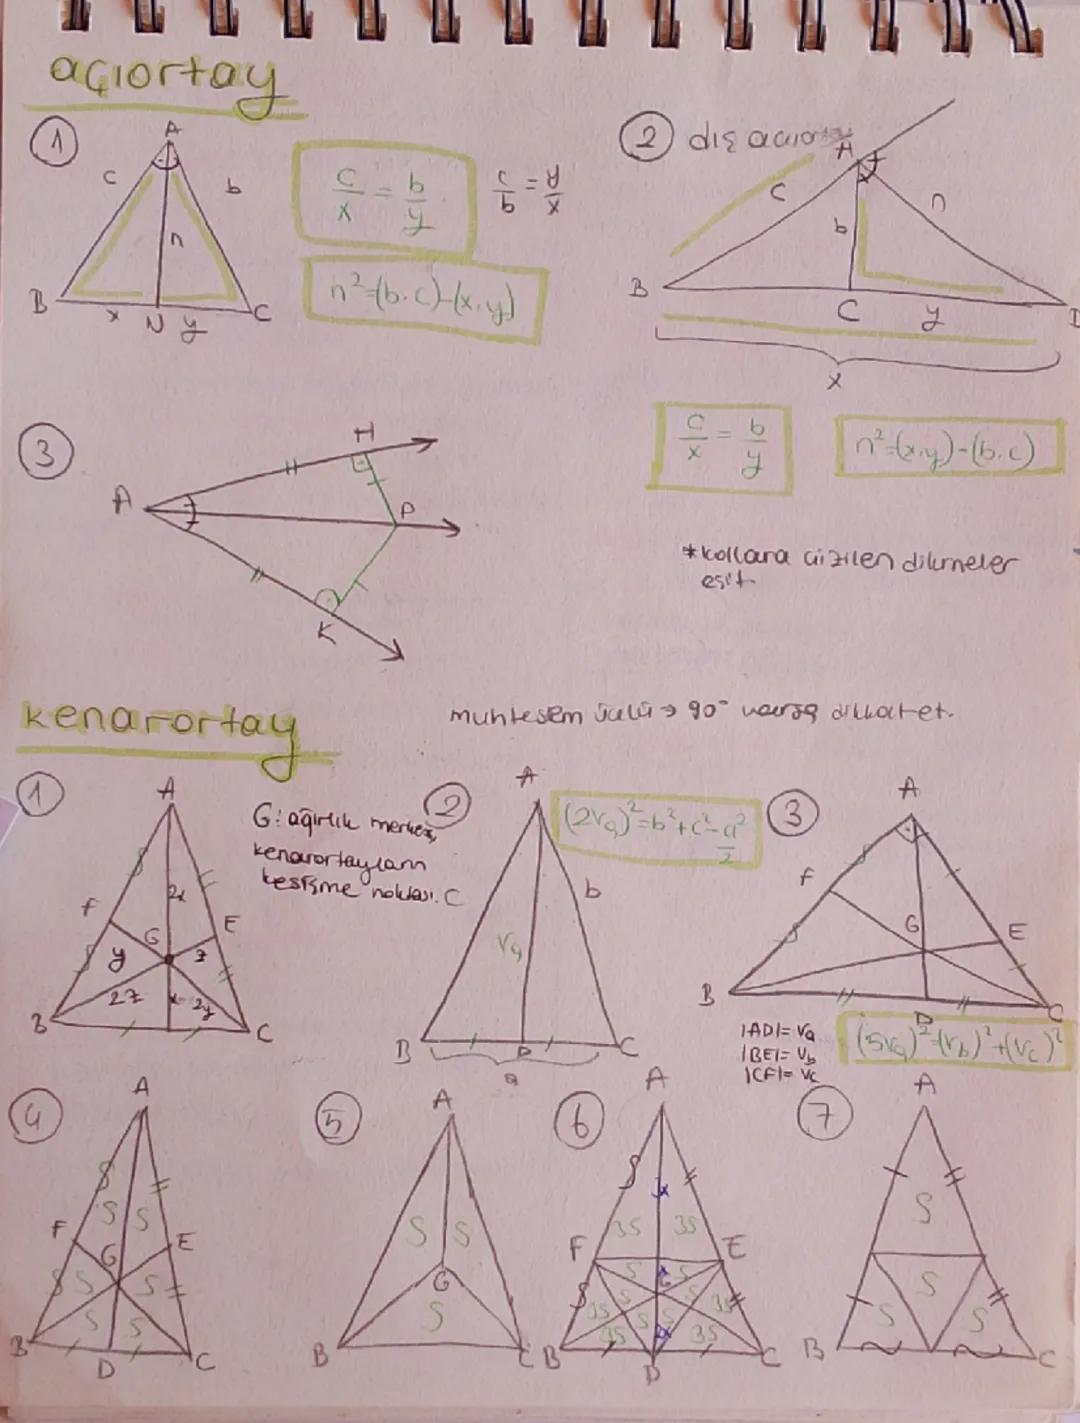 açıortay
1
A
c
b
n
B
x
N
y
C
c/x = b/y
c/b = x/y
n²=(b.c)-(x.y)
2 dış açıortay
A
c
n
b
B
C
y
D
x
c/x = b/y
n²=(x.y)-(b.c)
3
H
A
P
K
*kollara çizilen dikmeler
eşit
kenarortay
muhteşem üçlü → 90° varsa dikkat et.
1
A
2x
F
E
G
y
z
2z
x
2y
B
C
G: ağırlık merkezi,
kenarortayların
kesişme noktası.
2
A
(2Va)²=b²+c²-a²/2
c
b
Va
B
D
C
a
3
A
F
G
E
B
D
C
|AD|= Va
|BE|= Vb
|CF|= Vc
(5Va)²=(Vb)²+(Vc)²
4
A
S S
F
E
G
S S
S S
B
D
C
5
A
S S
G
S
B
C
6
A
x
3S 3S
F
E
x
S S
G
S S
3S 3S
S S
3S 3S
2x
B
D
C
7
A
S
S
S S
B
C